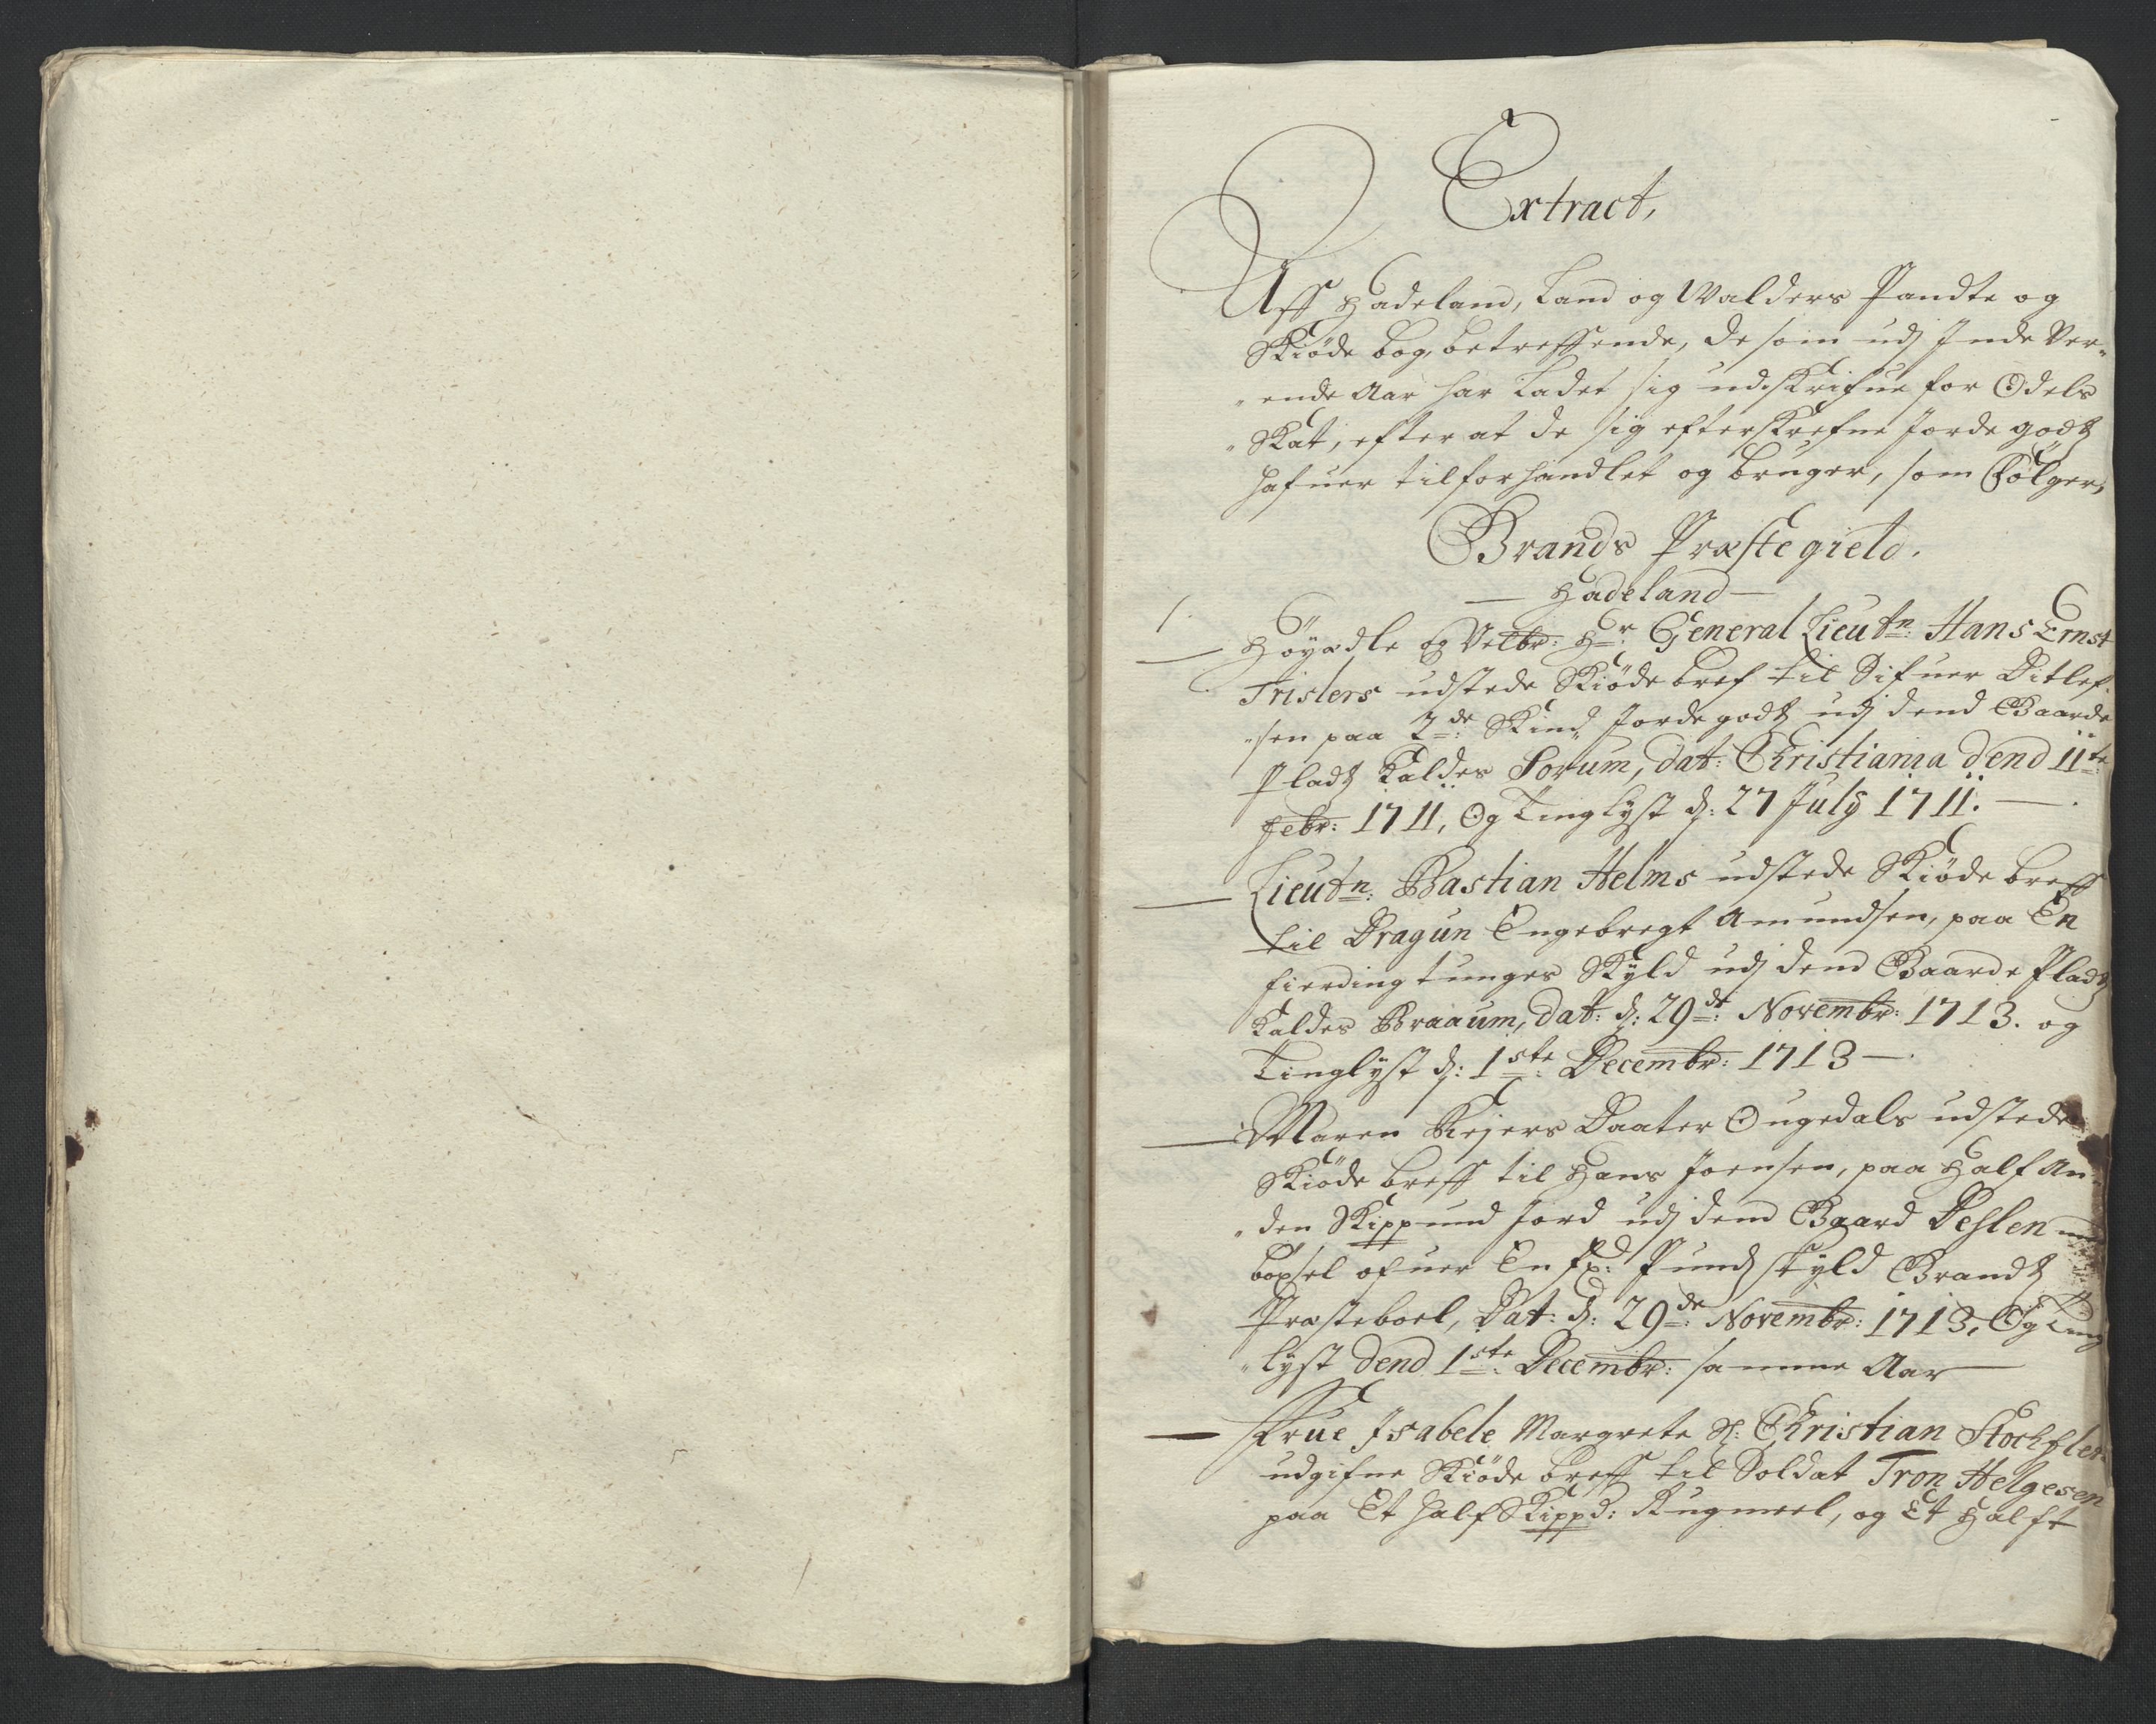 Extract,
Aff Hadeland, Land og Walders Pandte og
Skiöde bog, betreffende, de som udj Inde Ver„
„ende Aar har ladet sig udskrifue for Odels
„Skat, efter at de sig efterskrefne Jorde godtz
hafuer tilforhandlet og bruger, som Fölger,
Brands Præstegield.
— Hadeland —
1. Höyædle og Velbr: Hr: General Lieutn: Hans Ernst
Trislers udstede Skiöde bref til Sifuer Ditlef„
„sen paa 2de: Skind Jorde godtz udj dend Gaarde
Pladtz kaldes Sorum, dat: Christiania dend 11te:
Febr: 1711, Og Tinglyst d: 27 July 1711. —
— Lieutn: Bastian Helms udstede Skiöde breff
til Dragun Engebregt Amundsen, paa En
fierding tunges Skyld udj dend Gaarde Pladtz
kaldes Braaum, dat: d: 29de: Novembr: 1713. og
Tinglyst d: 1ste: Decembr: 1713 —
— Maren Rejers Daater Ougedals udstede
Skiöde breff til Hans Joensen, paa Half An„
„den Skippund Jord udj dend Gaard Dehlen
böxsel ofuer En Pundskyld Brandtz
Præsteboel, Dat: d: 29de: Novembr: 1713, Og Ting
„lyst dend 1ste: Decembr: samme Aar —
— Frue Isabele Margrete Sl: Christian Stockflet
udgifne Skiöde breff til Soldat Tron Helgesen
paa Et half Skippd: Rugmeel, og Et Halft